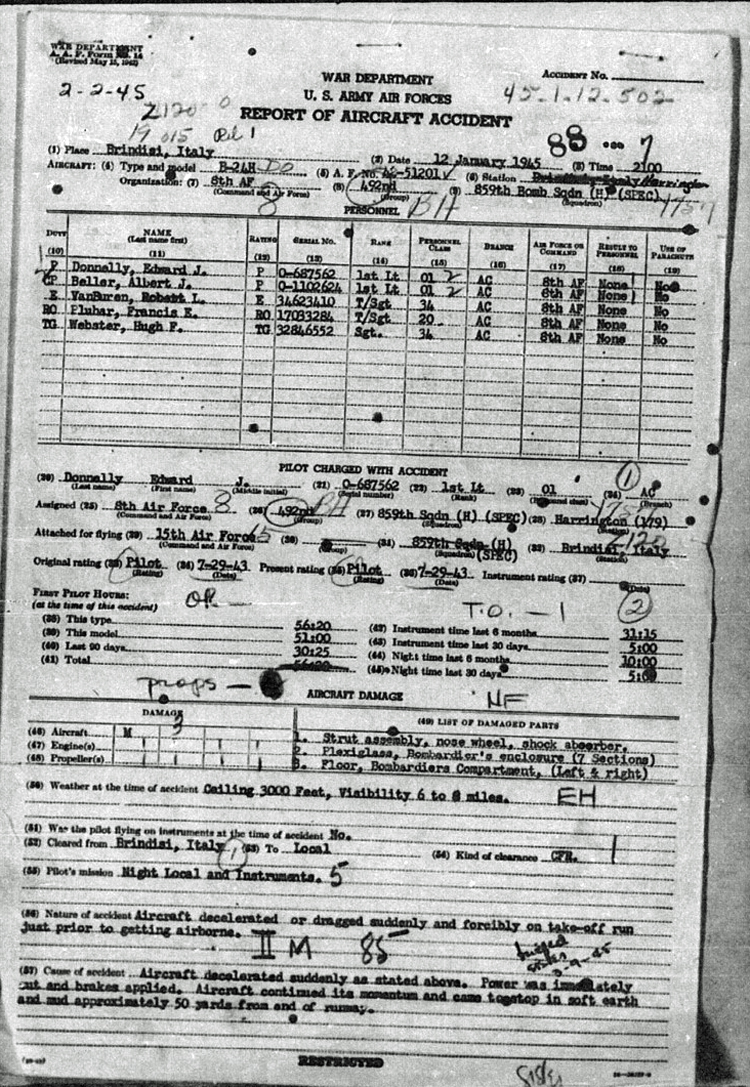 WAR DEPARTMENT
A. A. F. Form No. 14
(Revised May 15, 1942)
WAR DEPARTMENT
U. S. ARMY AIR FORCES
REPORT OF AIRCRAFT ACCIDENT
ACCIDENT No.
2-2-45
45-1-12-502
Z120
19 015 Rel 1
88 --- 7
(1) Place Brindisi, Italy (2) Date 12 January 1945 (3) Time 2100
AIRCRAFT: (4) Type and model B-24H DO (5) A. F. No. -51201 (6) Station Harrington
Organization: (7) 8th AF (8) 492nd (9) 859th Bomb Sqdn (H) (SPEC)
(Command and Air Force) (Group) (Squadron)
8 BH 1757
PERSONNEL
DUTY NAME RATING SERIAL NO. RANK PERSONNEL CLASS BRANCH AIR FORCE OR COMMAND RESULT TO PERSONNEL USE OF PARACHUTE
(Last name first)
(10) (11) (12) (13) (14) (15) (16) (17) (18) (19)
P Donnelly, Edward J. P O-687562 1st Lt 01 2 AC 8th AF None No
CP Beller, Albert J. P O-1102624 1st Lt 01 2 AC 8th AF None No
E VanBuren, Robert L. E 34623410 T/Sgt 34 AC 8th AF None No
RO Pluhar, Francis E. RO 17033284 T/Sgt 20 AC 8th AF None No
TG Webster, Hugh F. TG 32846552 Sgt. 34 AC 8th AF None No
PILOT CHARGED WITH ACCIDENT
1
(20) Donnelly Edward J. (21) O-687562 (22) 1st Lt (23) 01 (24) AC
(Last name) (First name) (Middle initial) (Serial number) (Rank) (Personnel class) (Branch)
Assigned (25) 8th Air Force 8 (26) 492nd BH (27) 859th Sqdn (H) (SPEC) (28) Harrington (179)
(Command and Air Force) (Group) (Squadron)
Attached for flying (29) 15th Air Force 15 (30) (31) 859th Sqdn (H) (SPEC) (32) Brindisi, Italy
(Command and Air Force) (Group) (Squadron) (Station)
Original rating (33) Pilot (34) 7-29-43 Present rating (35) Pilot (36) 7-29-43 Instrument rating (37)
(Rating) (Date) (Rating) (Date) (Date)
FIRST PILOT HOURS:
(at the time of this accident)
T.O. - 1 2
(38) This type 56:20 (42) Instrument time last 6 months 31:15
(39) This model 51:00 (43) Instrument time last 30 days 5:00
(40) Last 90 days 30:25 (44) Night time last 6 months 10:00
(41) Total (45) Night time last 30 days
props -
AIRCRAFT DAMAGE
NF
DAMAGE (49) LIST OF DAMAGED PARTS
3
(46) Aircraft M 1. Strut assembly, nose wheel, shock absorber.
(47) Engine(s) 2. Plexiglass, Bombardier's enclosure (7 Sections)
(48) Propeller(s) 3. Floor, Bombardiers Compartment, (Left & right)
(50) Weather at the time of accident Ceiling 3000 Feet, Visibility 6 to 8 miles.
EH
(51) Was the pilot flying on instruments at the time of accident No.
(52) Cleared from Brindisi, Italy 1 (53) To Local (54) Kind of clearance CFR.
(55) Pilot's mission Night Local and Instruments. 5
(56) Nature of accident Aircraft decelerated or dragged suddenly and forcibly on take-off run
just prior to getting airborne.
II M 85
(57) Cause of accident Aircraft decelerated suddenly as stated above. Power was immediately
cut and brakes applied. Aircraft continued its momentum and came to stop in soft earth
and mud approximately 50 yards from end of runway.
RESTRICTED